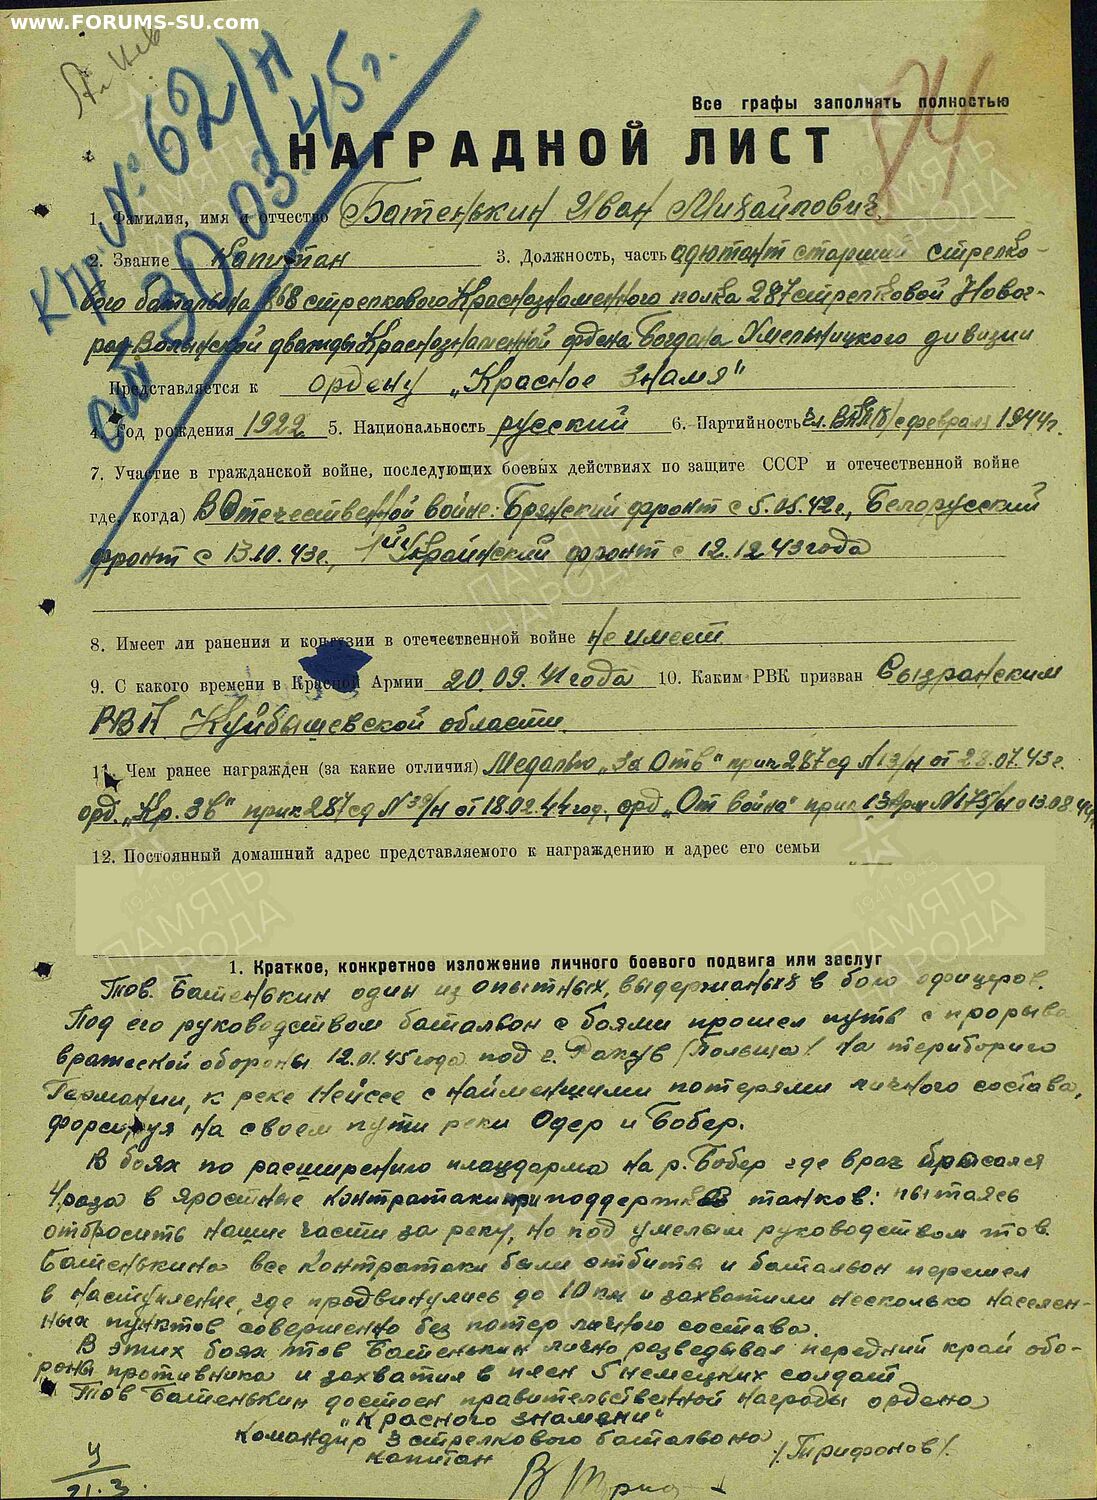 www.FORUMS-SU.com
Пр. № 62/н
от 30.03.45 г.
Все графы заполнять полностью
НАГРАДНОЙ ЛИСТ
1. Фамилия, имя и отчество Батенькин Иван Михайлович
2. Звание Капитан 3. Должность, часть адютант старший стрелко-
вого батальона 868 стрелкового Краснознаменного полка 287 стрелковой Новог-
род Волынской дважды Краснознаменной ордена Богдана Хмельницкого дивизии
Представляется к ордену „Красное Знамя"
4. Год рождения 1922 5. Национальность русский 6. Партийность чл. ВКП(б) с февраля 1944 г.
7. Участие в гражданской войне, последующих боевых действиях по защите СССР и отечественной войне
где, когда) В Отечественной войне: Брянский фронт с 5.05.42 г., Белорусский
фронт с 13.10.43 г., 1й Украинский фронт с 12.12.43 года
8. Имеет ли ранения и контузии в отечественной войне не имеет
9. С какого времени в Красной Армии 20.09.41 года 10. Каким РВК призван Сызранским
РВК Куйбышевской области.
11. Чем ранее награжден (за какие отличия) Медалью „За Отв" прик 287 сд N 13/н от 28.07.43 г.
орд. „Кр. Зв" прик 287 сд N 39/н от 18.02.44 год, орд „От война" прик 13 Арм N 175/н о 13.08.44г
12. Постоянный домашний адрес представляемого к награждению и адрес его семьи
1. Краткое, конкретное изложение личного боевого подвига или заслуг
Тов. Батенькин один из опытных, выдержаных в бою офицеров.
Под его руководством батальон с боями прошел путь с прорыва
вражеской обороны 12.01.45 года под г. Ракув (Польша) на територию
Германии, к реке Нейссе с найменшими потерями личного состава,
форсируя на своем пути реки Одер и Бобер.
В боях по расширению плацдарма на р. Бобер где враг бросался
4 раза в яростные контратаки при поддержке танков: пытаясь
отбросить наши части за реку, но под умелым руководством тов.
Батенькина все контратаки были отбиты и батальон перешел
в наступление, где продвинулись до 10 км и захватили несколько населен-
ных пунктов совершенно без потер личного состава.
В этих боях тов Батенькин лично разведывал передний край обо-
роны противника и захватил в плен 5 немецких солдат
Тов Батенькин достоен правительственной награды ордена
„Красного знамени"
Командир 3 стрелкового батальона
капитан /Трифонов/.
21.3.